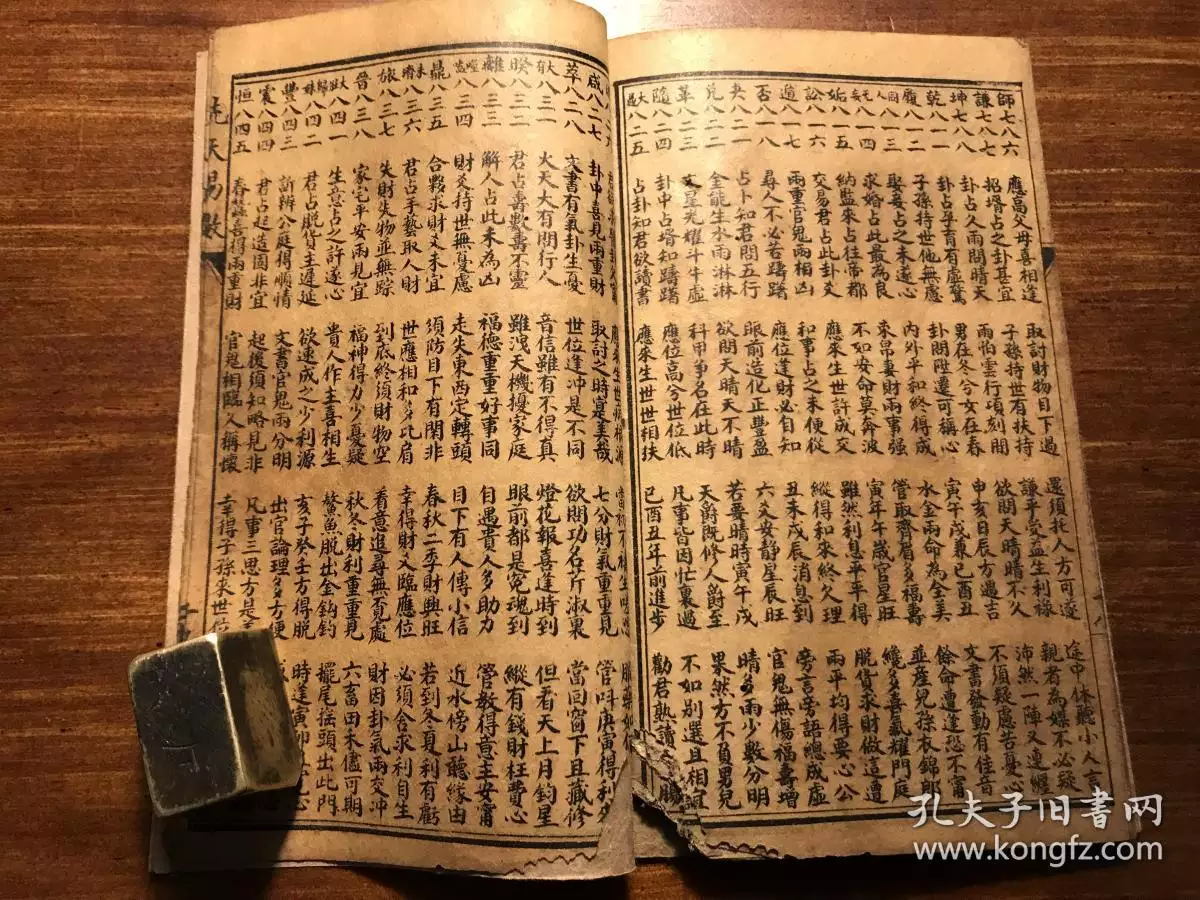 師七八六 應高父母喜相逢 取討財物目下過 還須托人方可遂 途中休聽小人言
謙七八七 招壻占之卦甚宜 子孫持世有扶持 謙平受益生利祿 親者為媒不必疑
坤七八八 卦占久雨問晴天 雨怕雲行頃刻間 欲問天晴晴不久 沛然一陣又連纏
乾八一一 卦占孕育有虛驚 男在冬兮女在春 申亥日辰方遇吉 不須疑慮苦憂
履八一二 子孫持世他無慮 卦問陞遷可稱心 寅午戌兼巳酉丑 文書發動有佳音
同人八一三 娶妾占之未遂心 內外平和終得成 水金兩命為全美 餘命遭逢恐不甯
无妄八一四 求婚占此最為良 來帛妻財兩事強 管取齊眉多福壽 並產兒孫衣錦郎
姤八一五 納監來占往帝都 不如安命莫奔波 寅年午歲官星旺 纔多喜氣耀門庭
訟八一六 交易君占此卦爻 應來生世許成交 雖然利息平平得 脫貨求財做這遭
遯八一七 兩重官鬼兩相凶 和事占之未便從 縱得和來終久理 兩平均得要心公
否八一八 尋人不必苦躊躇 應位逢財必自知 丑未戌辰消息到 旁言旁語總成虛
夬八二一 占卜知君問五行 眼前造化正豐盈 六爻安靜星辰旺 官鬼無傷福壽增
兌八二二 全能生水雨淋淋 欲問天晴天不晴 若要晴時寅午戌 晴多雨少數分明
革八二三 文星光耀斗牛虛 科甲事名在此時 天爵既修人爵至 果然方不負男兒
隨八二四 卦中占壻知躊躇 應位高兮世位低 凡事皆因忙裏過 不如別選且相宜
大過八二五 占卦知君欲讀書 應來生世世相扶 巳酉丑年前進步 勸君熟讀
應來生世
咸八二七 卦中喜見兩重財 取討之時富美哉 七分財氣重重見 管呌庚寅得利多
萃八二八 文書有氣卦生憂 世位逢冲是不同 欲問功名斤淑裏 當回窗下且藏修
大有八三一 火天大有問行人 音信雖有不得真 燈花報喜逢時到 但看天上月鈞星
睽八三二 君占壽數壽不靈 雖洩天機擾家庭 眼前都是冤魂到 縱有錢財枉費心
離八三三 解人占此未為凶 福德重重好事同 自遇貴人多助力 管教得意主安甯
噬嗑八三四 財爻持世無憂慮 走失東西定轉頭 目下有人傳小信 近水傍山聽緣由
鼎八三五 合夥求財爻未宜 須防目下有閑非 春秋二季財興旺 若到冬夏利有虧
未濟八三六 君占手藝取人財 世應相和多比肩 幸得財爻臨應位 必須舍求利自生
旅八三七 失財失物並無踪 到底終須財物空 看意追尋無覓處 財因卦氣兩交冲
晉八三八 家宅平安兩見宜 福神得力少憂疑 秋冬財利重重見 六畜田禾儘可期
大壯八四一 生意占之許遂心 貴人作主喜相生 鰲魚脫出金鈎釣 擺尾搖頭出此門
歸妹八四二 君占脫貨主遲延 欲速成之少利源 亥子癸壬方得脫 時逢寅卯
豐八四三 訴辨公庭得順情 文書官鬼兩分明 出官論理多方便
震八四四 君占起造園非宜 起後須知略見非 凡事三思方是
恒八四五 春蠶喜得兩重財 官鬼相臨人稱懷 幸得子孫來世位
先天易數
孔夫子旧書网
www.kongfz.com